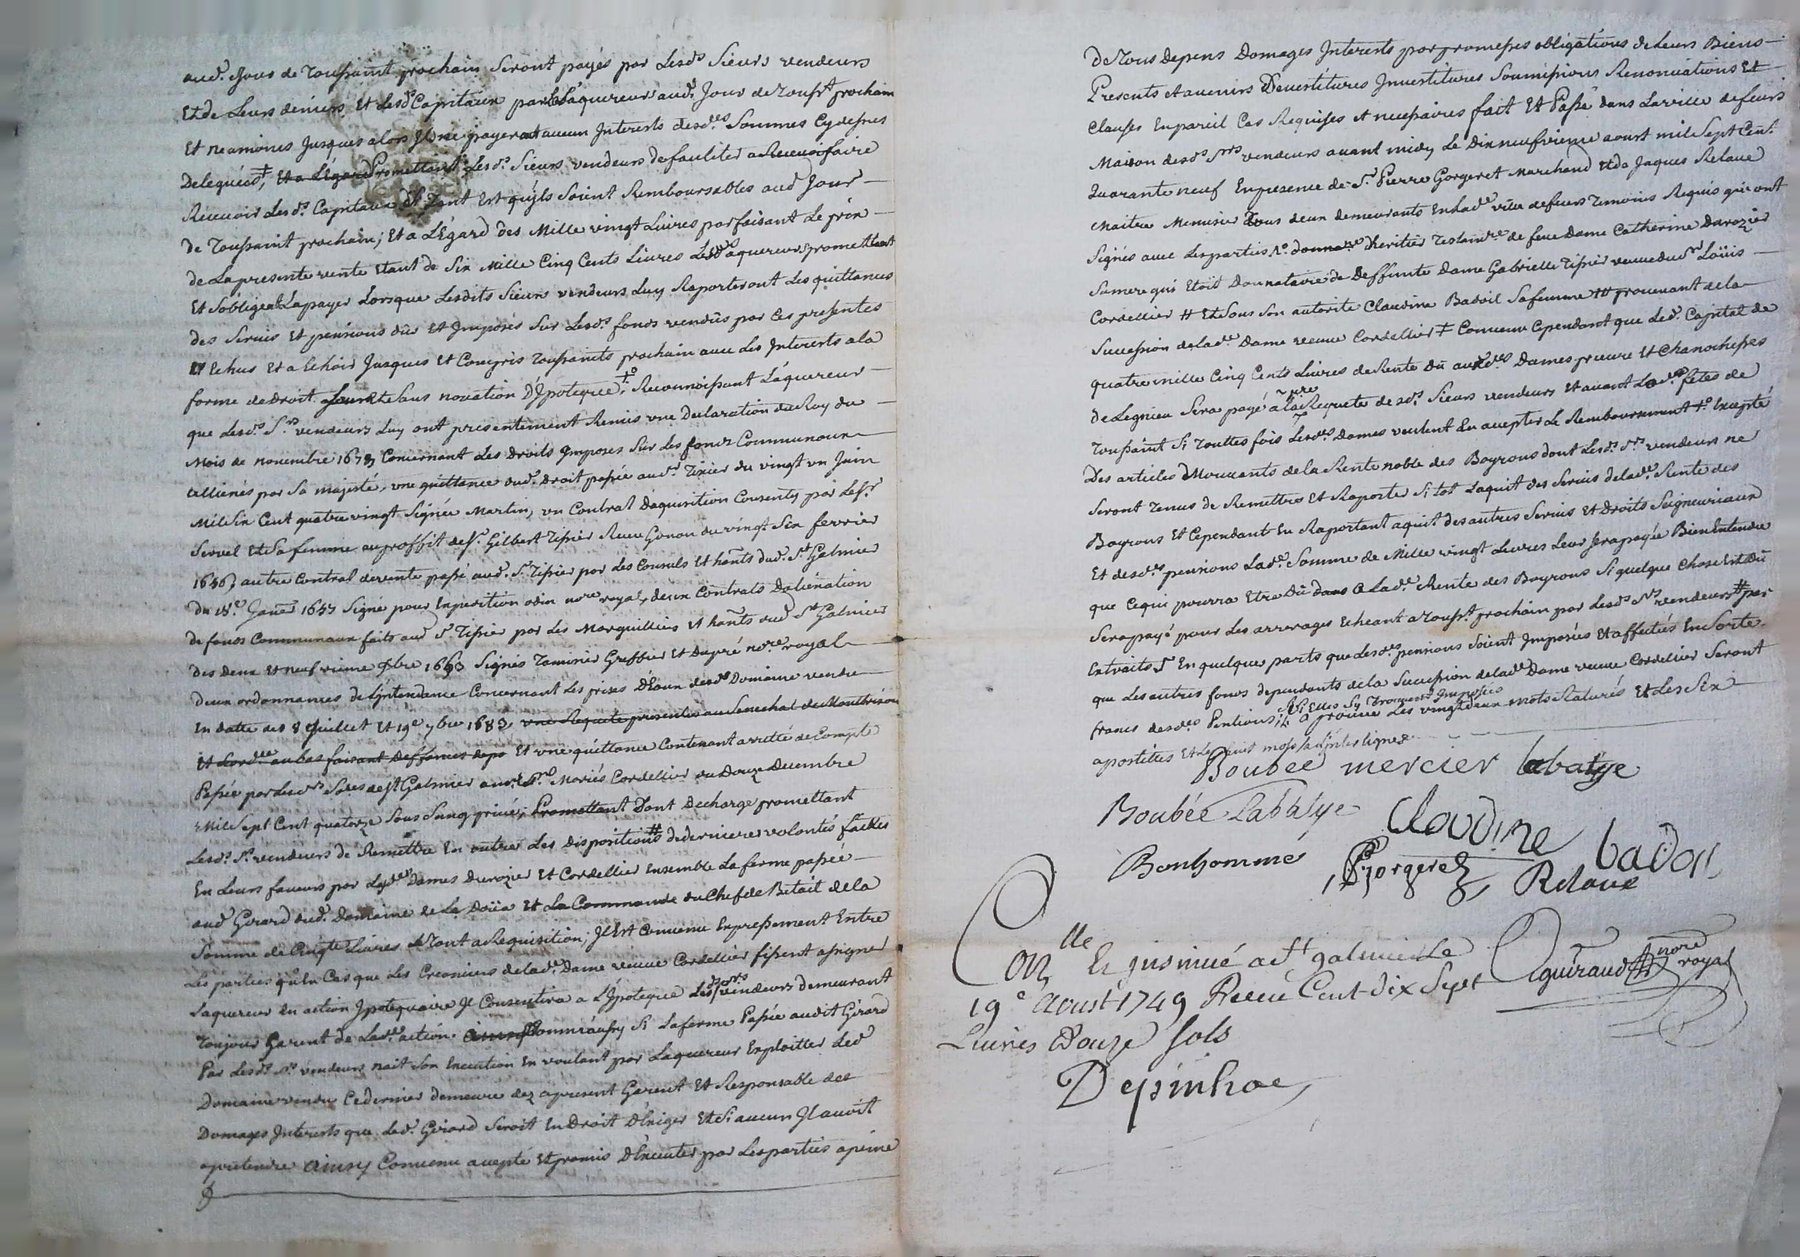 aud.t Jour de Toussaint prochain seront payés par Lesd.s Sieurs vendeurs
Et de Leurs deniers Et Lesd.s Capitaux par L'aquereur aud.t Jour de Touss.t prochain
Et neamoins Jusques alors Il ne payera aucun Interests desd.es Sommes Cy desses
deleguées, Et a L'égard Promettant Lesd.s Sieurs vendeurs de faire
Recevoir Lesd.s Capitaux Et Tant Est qu'jls soient Remboursables aud.t Jour
de Toussaint prochain; Et a L'Egard des Mille vingt Livres parfaisant Le prix
de La presente vente Etant de Six Mille Cinq Cents Livres Led. aquereur promettant
Et s'oblige La payer Lorsque Lesdits Sieurs vendeurs Luy Raporteront Les quittances
des Servis Et pensions dûs Et Imposés sur Lesd.s fonds vendus par Ces presentes
Echus Et a Echoir Jusques Et Compris Toussaints prochain avec Les Interests a la
forme de droit Sans novation D'Ipoteque; Reconnoissant L'aquereur
que Lesd.s S.rs vendeurs Luy ont presentement Remis une Declaration du Roy du
Mois de novembre 1677 Concernant Les Droits Imposés sur Les fonds Communaux
allienés par Sa majesté, une quittance dud. droit passée aud.t S.r Tixier du vingt un Juin
Mil Six Cent quatre vingt Signée Martin, un Contrat D'aquisition Consenty par Le S.r
Servel Et Sa femme au proffit de S.r Gilbert Tissier Receu Gonon du vingt Six fevrier
1656, autre Contrat de vente passé aud. S.r Tissier par Les Consuls Et hants dud. S.t Galmier
du 18.e Janer 1657 Signé pour Expedition odin nore royal, deux Contrats D'alienation
de fonds Communaux faits aud S.r Tissier par Les Marguilliers Et hants dud S.t Galmier
des deux Et neufvieme xbre 1693 Signés Greffier Et Dupré nore royal
deux ordonnances de L'jntendance Concernant Les prises D'Eaux desd. Domaine vendu
En datte des 8 Juillet Et 19.e 7bre 1683, une Requete presentée au Senechal de Montbrison
Et L'ord.ce au bas faisant Deffences Et une quittance Contenant arretté de Compte
Passée par de S.t Galmier aud. S.rs Mariés Cordellier du Douze Decembre
Mil Sept Cent quatorze Sous Seing privé, Promettant Dont Decharge promettant
Lesd. S.rs vendeurs de Remettre En outre Les dispositions de dernieres volontés faittes
En Leurs faveurs par Dames Durozier Et Cordellier Ensemble La ferme passée
aud Girard dud. Domaine de La Doüa Et La Commande du Chef de Betail de la
Somme de Livres Le Tout a Requisition; Il Est Convenu Expressement Entre
Les parties qu'En Cas que Les Creanciers de lad.e Dame veuve Cordellier fissent assigner
L'aquereur En action Ipotequaire Il Consentira a L'Ipoteque Lesd. S.rs vendeurs demeurant
Toujours Garent de Lad.e action. Comme aussy Si La ferme Passée audit Girard
Par Lesd. S.rs vendeurs n'ait Son Execution En voulant par L'aquereur Exploitter Led
Domaine vendu Ce dernier demeure dez apresent Garent Et Responsable des
Domages Interests que Led. Girard Seroit En Droit D'Exiger Et Si aucun Il avoit
a pretendre ainsy Convenu accepté Et promis D'Executer par Les parties a peine
de Tous depens Domages Interests par promesses obligations de Leurs Biens
Presents Et avenirs Devestitures Investitures Soumissions Renonciations Et
Clauses En pareil Cas Requises Et necessaires fait Et Passé dans La ville de feurs
Maison desd.s S.rs vendeurs avant midy Le Dix neufvieme aoust mil Sept Cent
Quarante neuf En presence de S.r Pierre Gorgeret Marchand Et de Jaques Relave
Maitre Menusier Tous deux demeurants En Lad.e ville de feurs Temoins Requis qui ont
Signés avec Les parties Heritier Testam.re de feue Dame Catherine Durozier
Sa mere qui Etoit Donnataire de Deffunte Dame Gabrielle Tissier veuve du S.r Loüis
Cordellier # Et Sous Son autorité Claudine Badoil Sa femme provenant de la
Succession de lad.e Dame veuve Cordellier Convenu Cependant que Led. Capital de
quatre mille Cinq Cents Livres de Rente dû auxd.es Dames prieure Et Chanoinesses
de Legnieu Sera payé a la Requete desd. Sieurs vendeurs Et avant Lesd.es fetes de
Toussaint Si Touttes fois Lesd.es Dames veulent En accepter Le Remboursement Excepté
Des articles Mouvants de la Rente noble des Bayrons dont Lesd. S.rs vendeurs ne
Seront Tenus de Remettre Et Raporter Si tot L'aquit des Servis de lad.e Rente des
Bayrons Et Cependant En Raportant aquit des autres Servis Et Droits Seigneuriaux
Et desd.es pensions Lad.e Somme de Mille vingt Livres Leur Sera payée Bien Entendu
que Ce qui pourra Etre Dû a Lad.e Rente des Bayrons Si quelque Chose Est Dû
Sera payé pour Les arrerages Echeant a Touss.t prochain par Lesd. S.rs vendeurs # par
Extraits En quelque parts que Lesd.es pensions Soient Imposées Et affectées En Sorte
que Les autres fonds dependants de la Succession de lad.e Dame veuve Cordellier Seront
francs desd.es Pentions; Si Elles S'y Trouvent Imposées aprouvé Les vingt deux mots Raturés Et Les Six
apostilles Et Les huit mots Interlignes
Boubée mercier labatye
Boubée Labatye Claudine badoil
Bonhomme PGorgeret Relave
Con.lle Et jnsinué a S.t galmier Le Aguiraud nore royal
19.e aoust 1749 Receu Cent dix Sept
Livres Douze Sols
Depinhac